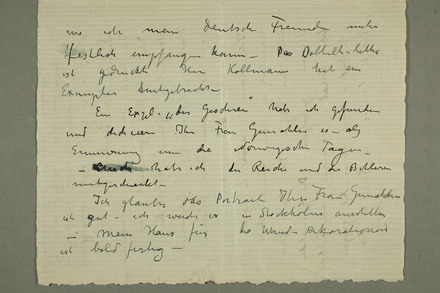 wo ich mein deutsche Freunde mehr
festlich empfangen kann – Das
ist gedruckt Herr Kollmann hat ein
Exemplar
Ein Expl. „des Geschrei" hab ich gefunden
und Ihr Frau Gemahlin es – als
Erinnerung an die Norwegische Tagen –
– habe ich die Reiche und die Bettleren
mitgeschickt –
Ich glaube das Portrait Ihr Frau Gemahlin
ist gut – ich werde es in Stockholm ausstellen
– mein Haus für die Wand Dekorationen
ist bald fertig –